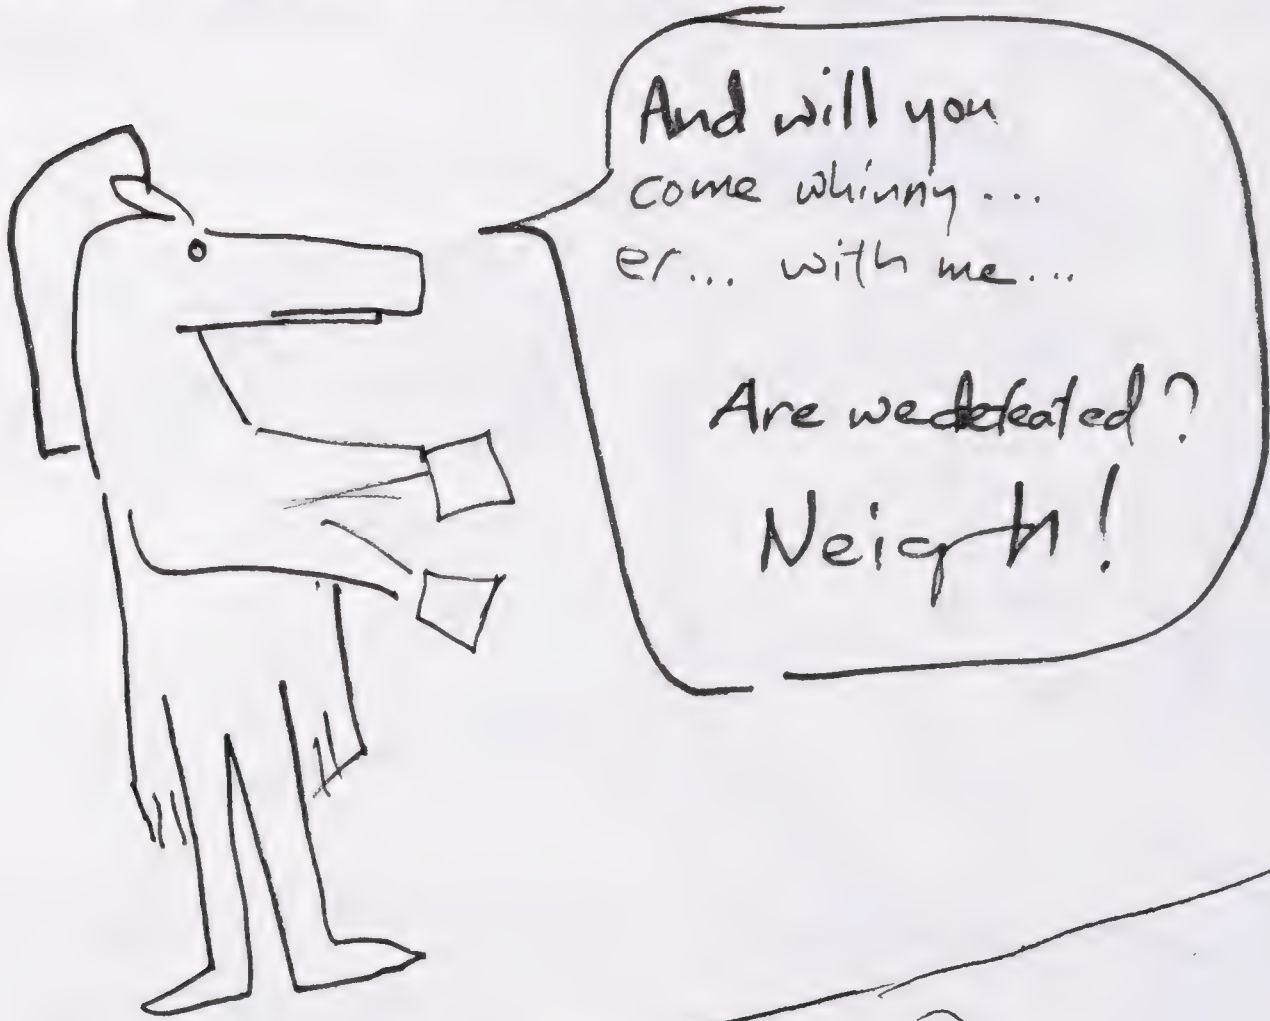 And will you
come whinny...
er... with me...
Are we defeated?
Neigh!